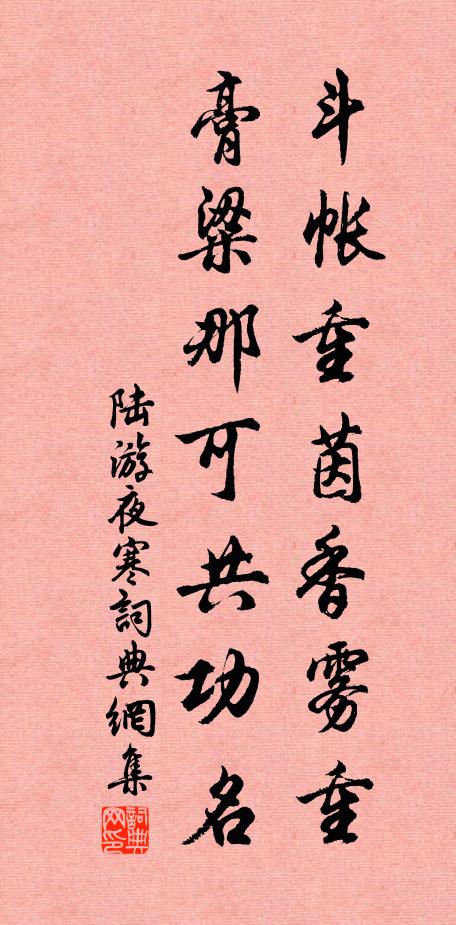 斗帐重茵香雾重
膏粱那可共功名
陆游夜寒詞典網集
詞典网印